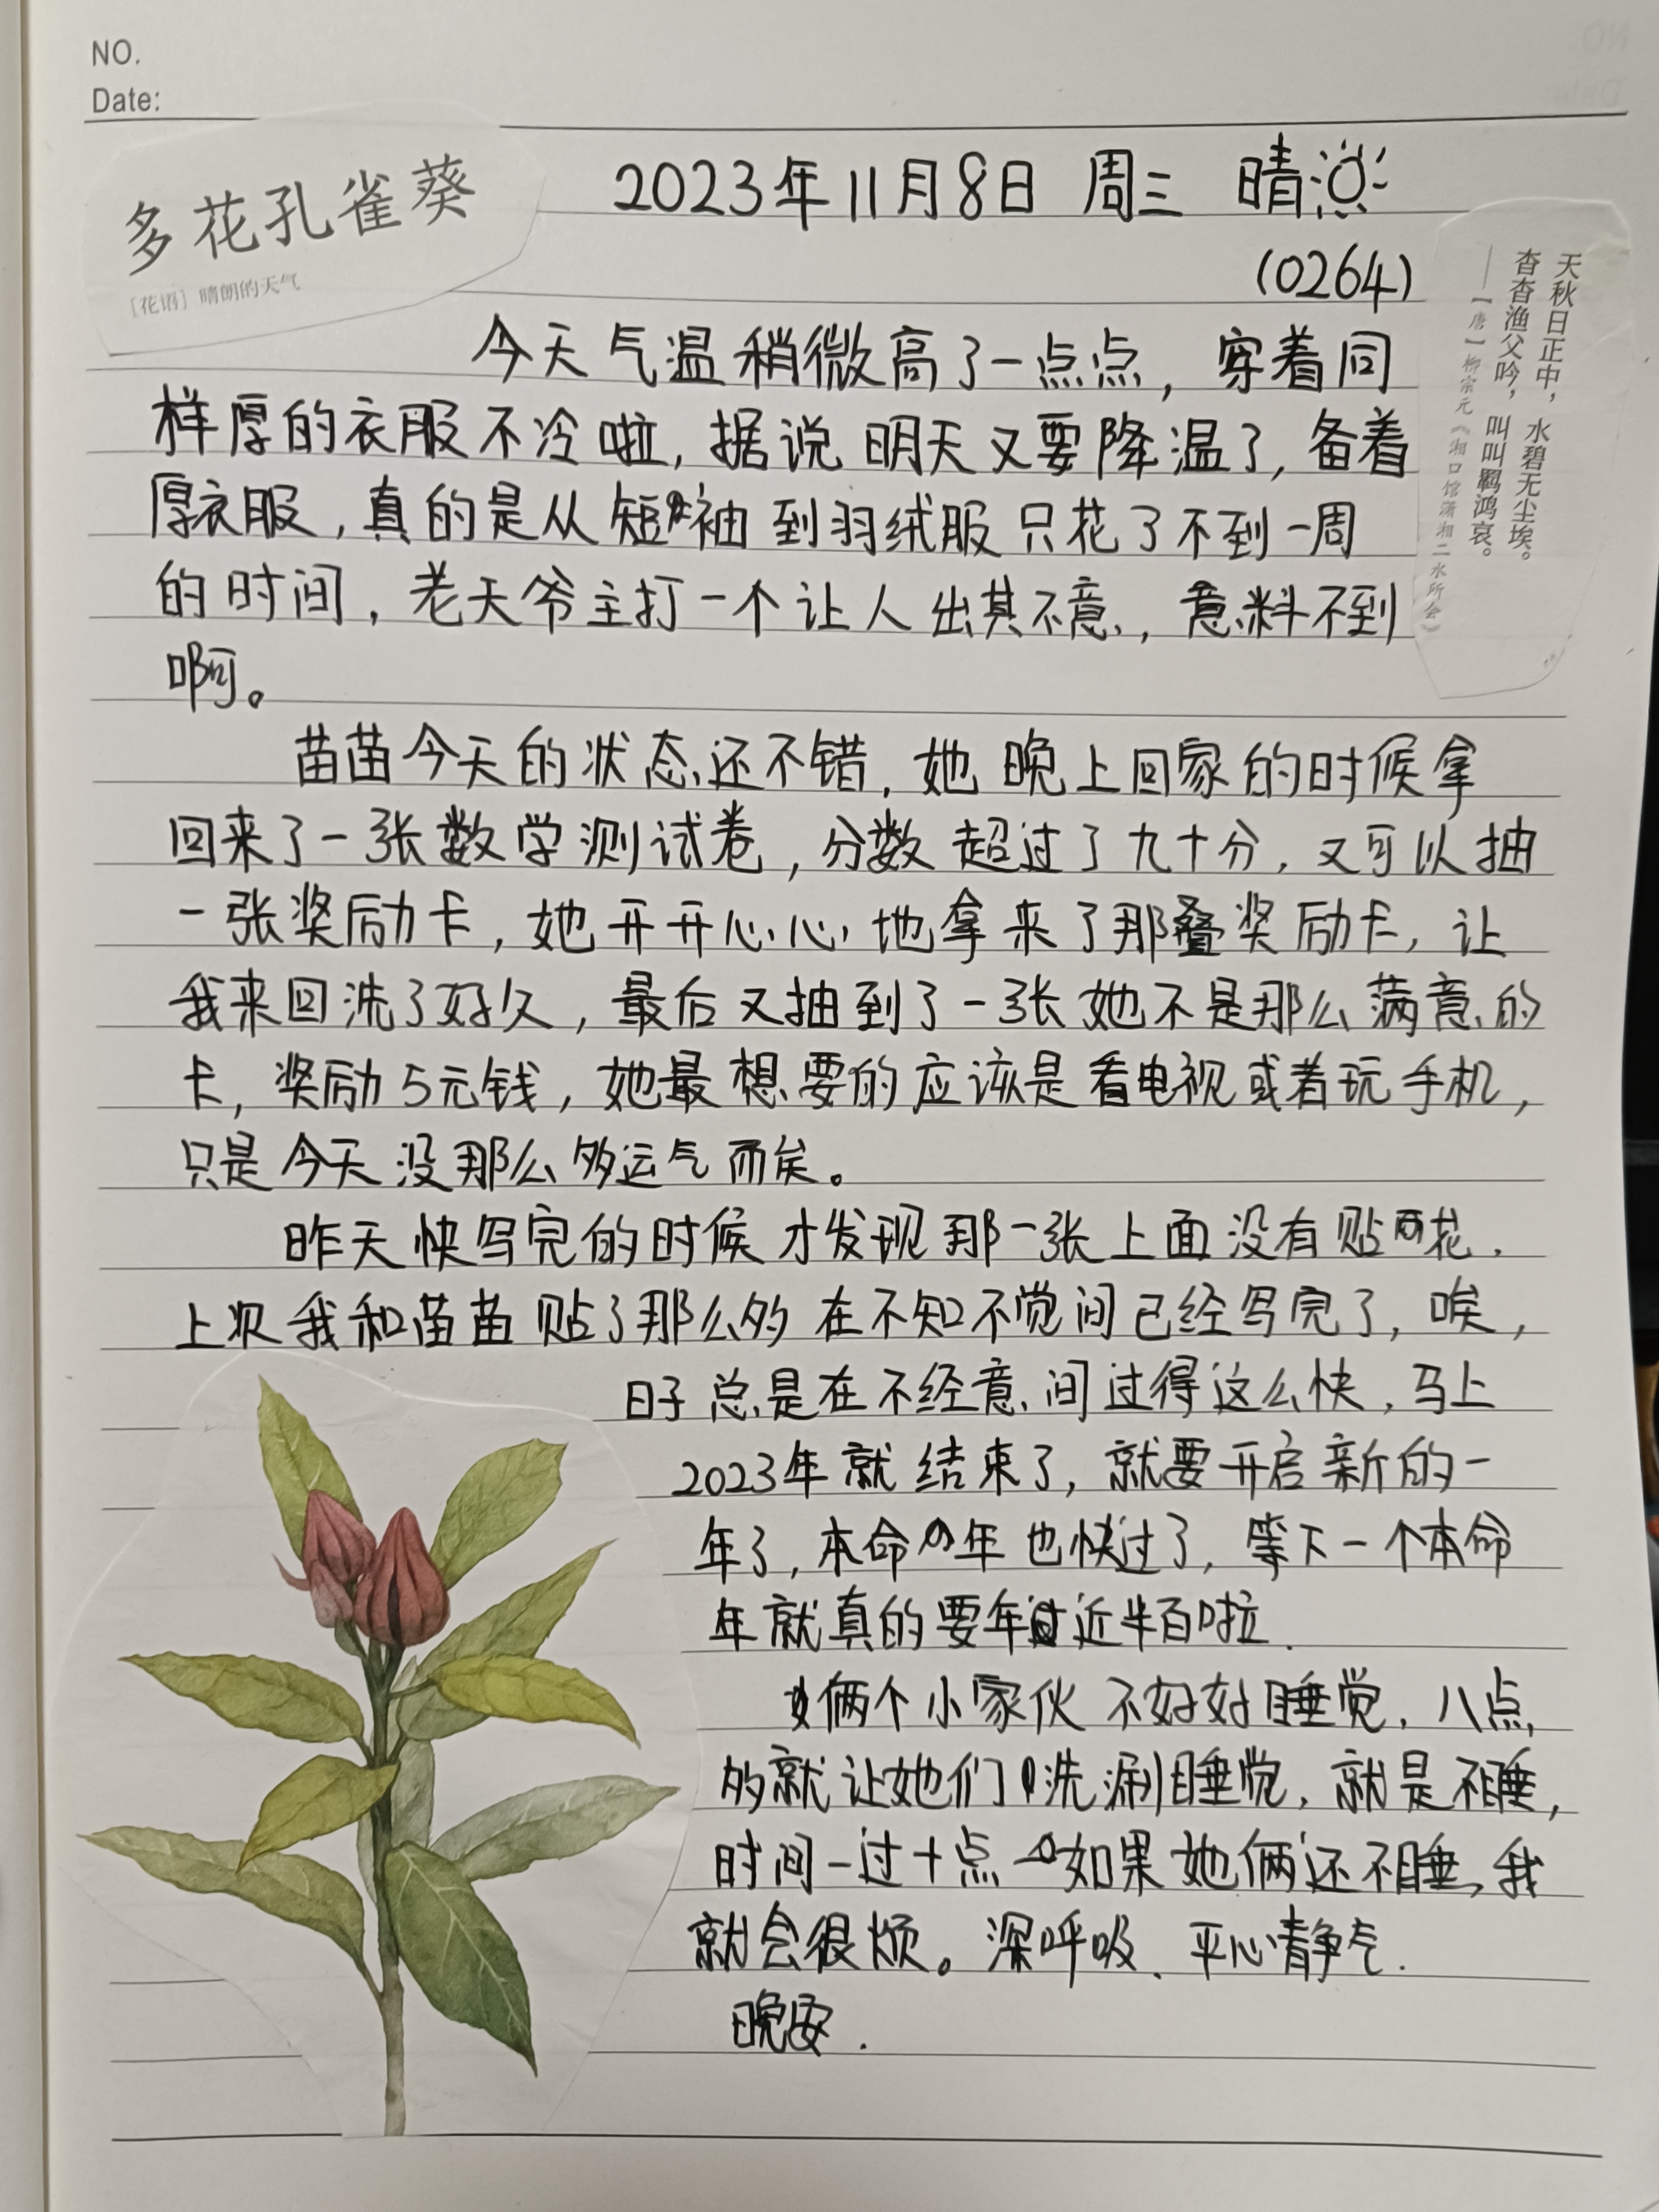 NO.
Date:
多花孔雀葵
[花语] 晴朗的天气
2023年11月8日 周三 晴
(0264)
天秋日正中，水碧无尘埃。
杳杳渔父吟，叫叫羁鸿哀。
——【唐】柳宗元《湘口馆潇湘二水所会》
今天气温稍微高了一点点，穿着同
样厚的衣服不冷啦，据说明天又要降温了，备着
厚衣服，真的是从短袖到羽绒服只花了不到一周
的时间，老天爷主打一个让人出其不意，意料不到
啊。
苗苗今天的状态还不错，她晚上回家的时候拿
回来了一张数学测试卷，分数超过了九十分，又可以抽
一张奖励卡，她开开心心地拿来了那叠奖励卡，让
我来回洗了好久，最后又抽到了一张她不是那么满意的
卡，奖励5元钱，她最想要的应该是看电视或者玩手机，
只是今天没那么多运气而矣。
昨天快写完的时候才发现那一张上面没有贴花.
上次我和苗苗贴了那么多在不知不觉间已经写完了，唉，
日子总是在不经意间过得这么快，马上
2023年就结束了，就要开启新的一
年了，本命年也快过了，等下一个本命
年就真的要年近半百啦.
俩个小家伙不好好睡觉，八点
多就让她们洗涮睡觉，就是不睡，
时间一过十点如果她俩还不睡，我
就会很烦。深呼吸、平心静气.
晚安.